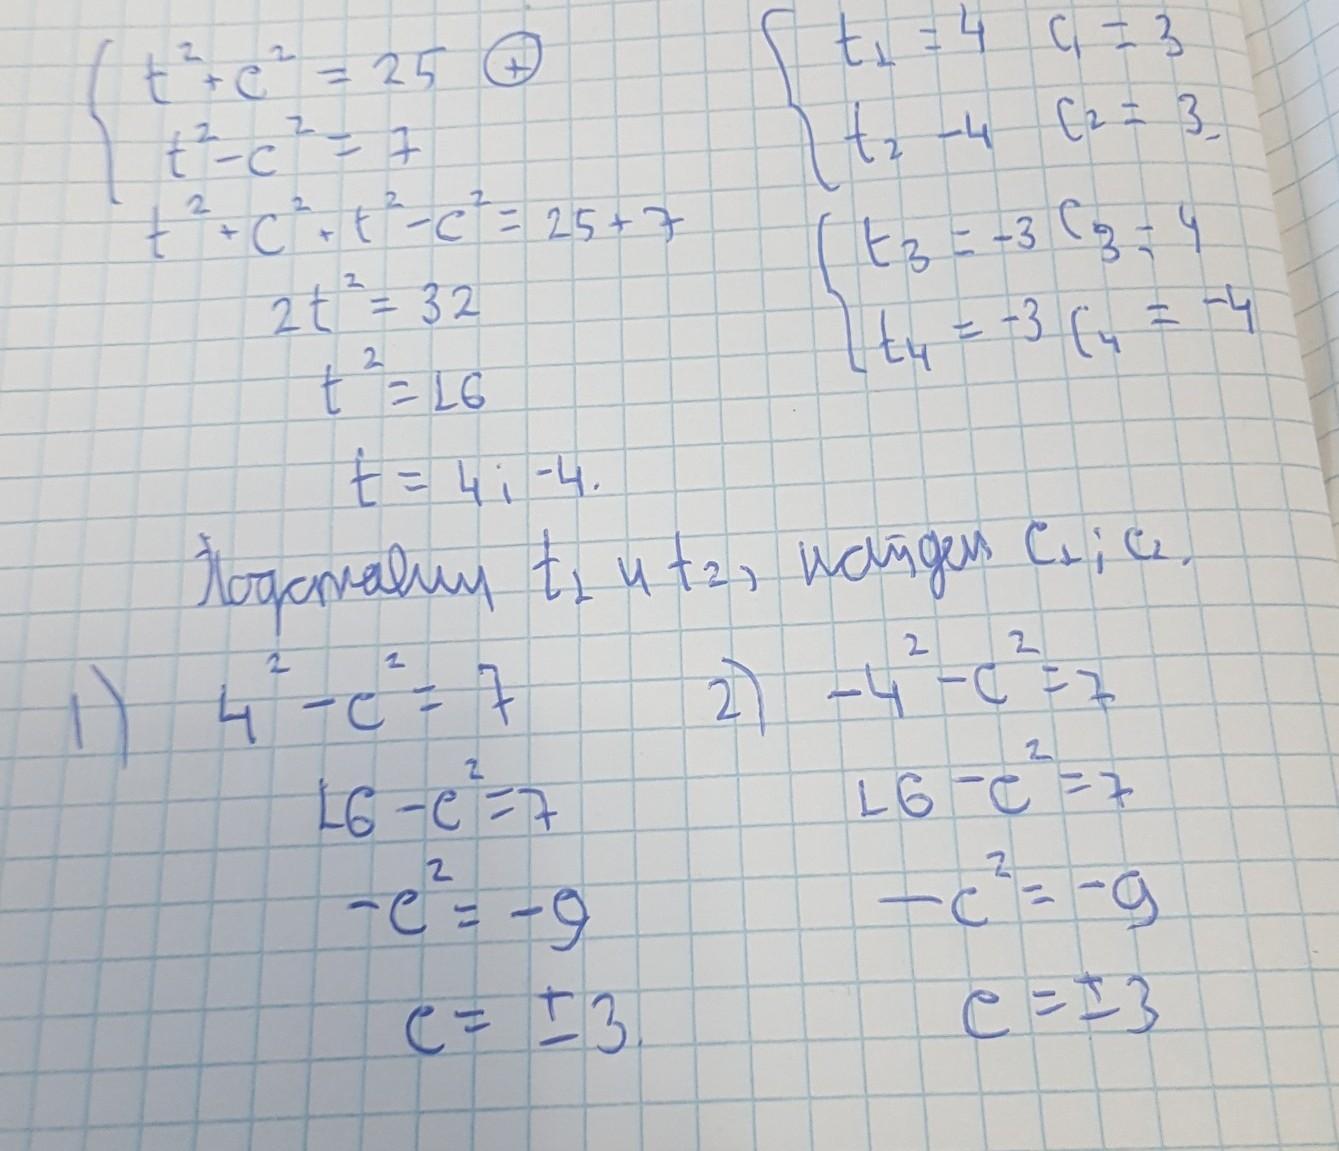 t² + c² = 25 ⊕
t² - c² = 7
t² + c² + t² - c² = 25 + 7
2t² = 32
t² = 16
t = 4; -4.
t₁ = 4 c₁ = 3
t₂ -4 c₂ = 3
t₃ = -3 c₃ = 4
t₄ = -3 c₄ = -4
Подставим t₁ и t₂, найдем c₁; c₂.
1) 4² - c² = 7
16 - c² = 7
-c² = -9
c = ±3.
2) -4² - c² = 7
16 - c² = 7
-c² = -9
c = ±3